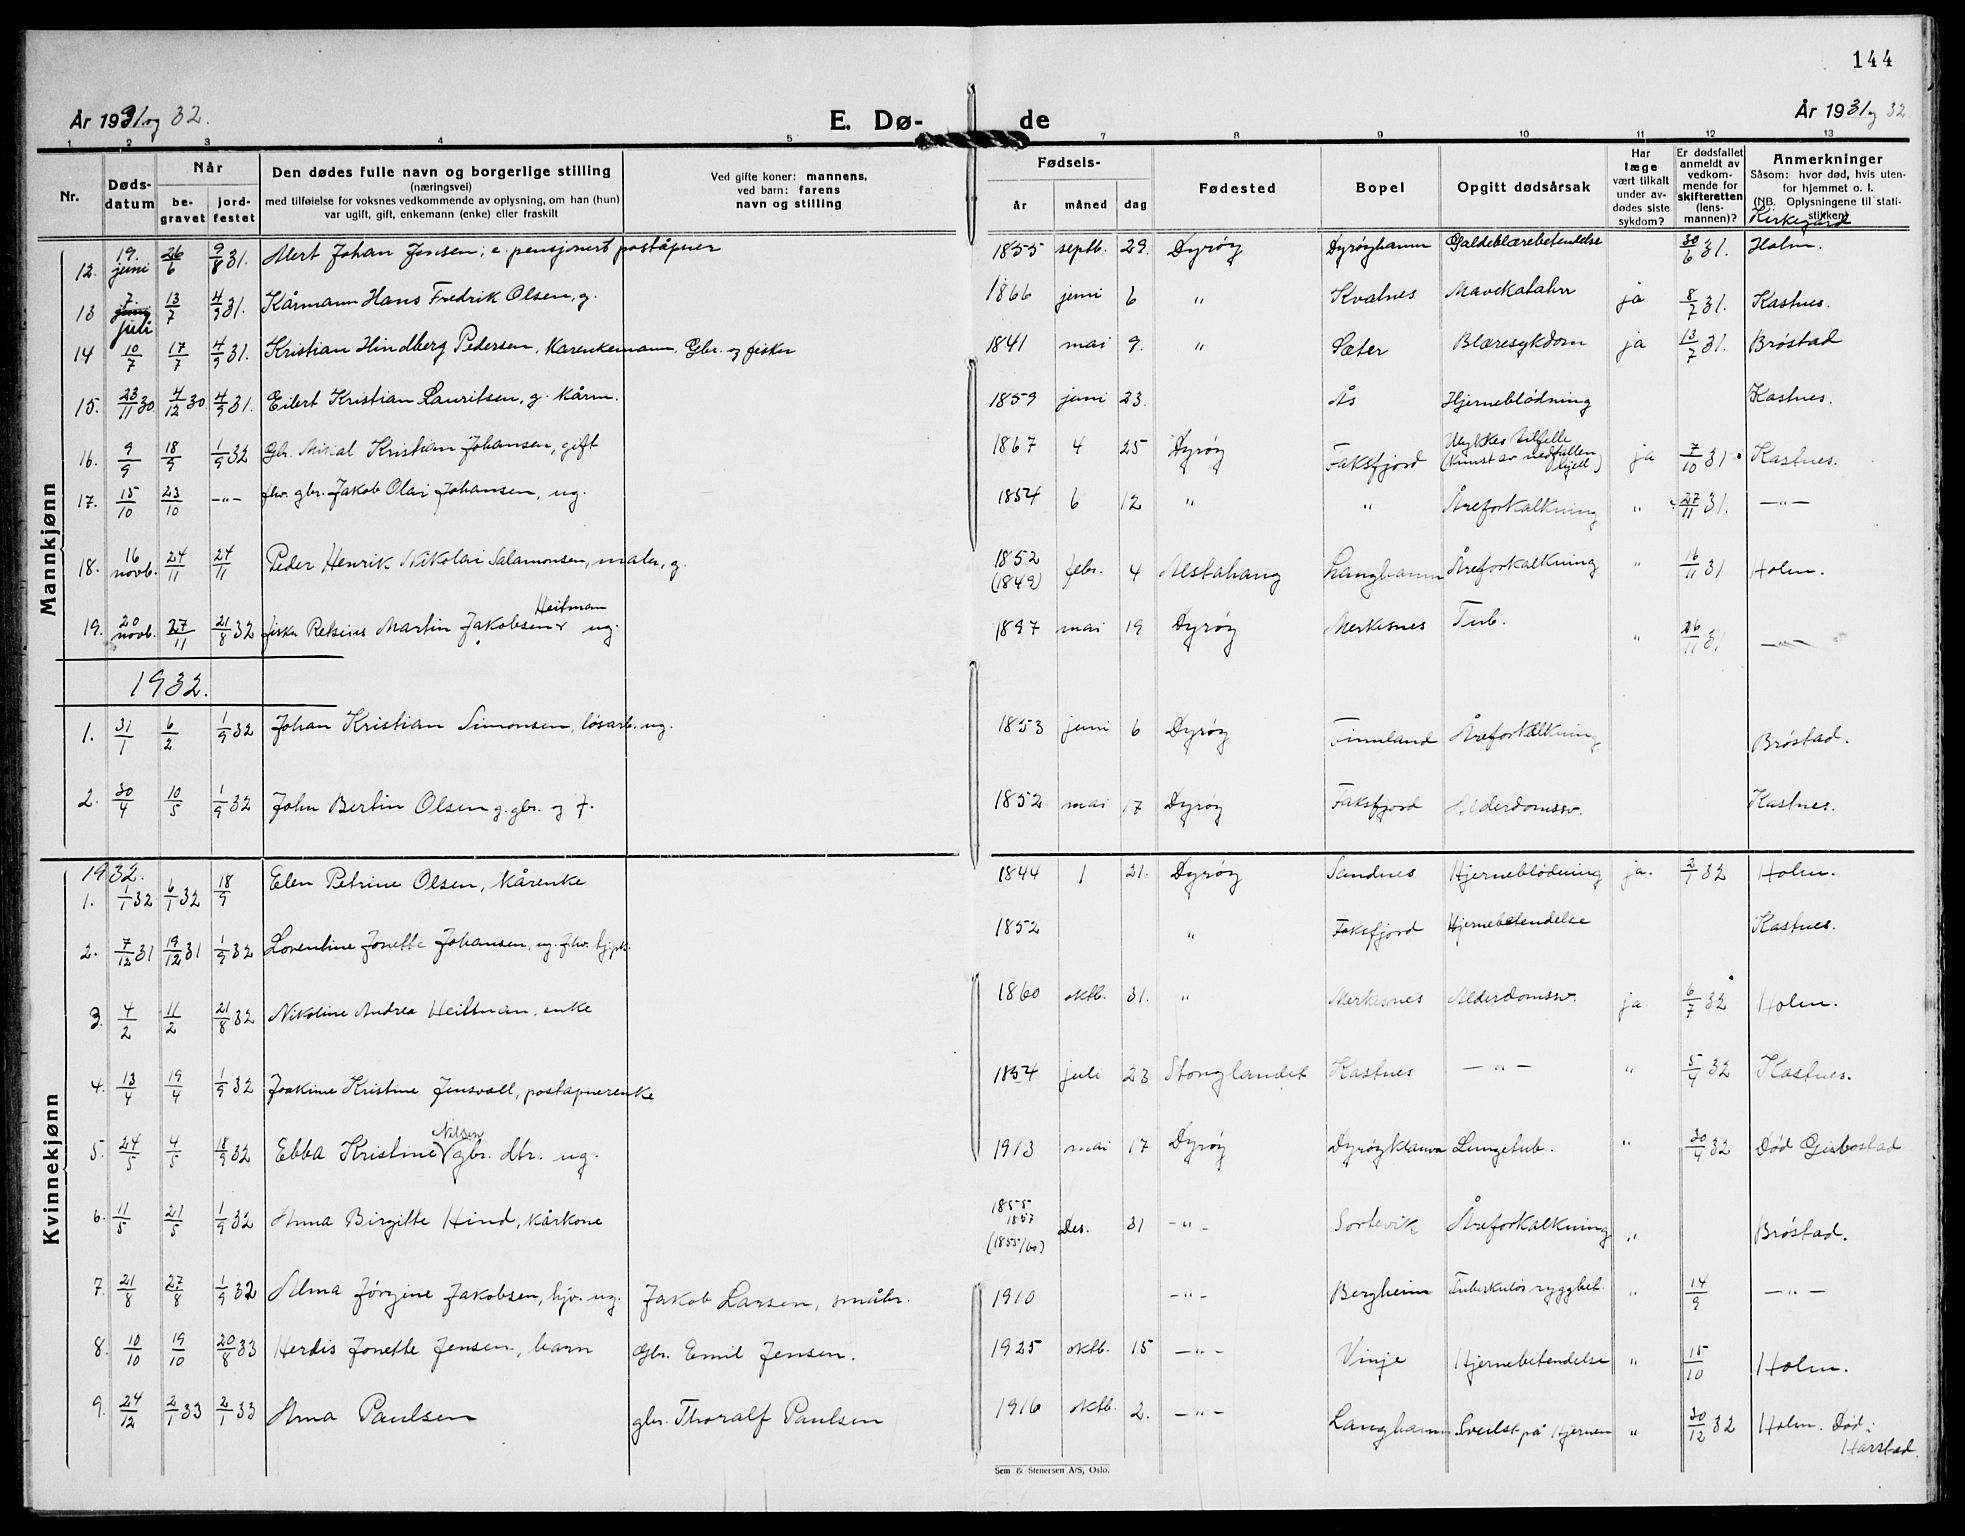 144
År 1931 og 32.
E. Dø- de
År 1931 og 32.
1 2 3 4 5 7 8 9 10 11 12 13
Nr.
Døds-datum
Når
be-gravet
jord-festet
Den dødes fulle navn og borgerlige stilling
(næringsvei)
med tilføielse for voksnes vedkommende av oplysning, om han (hun)
var ugift, gift, enkemann (enke) eller fraskilt
Ved gifte koner: mannens,
ved barn: farens
navn og stilling
Fødsels-
år måned dag
Fødested
Bopel
Opgitt dødsårsak
Har læge vært tilkalt under av-dødes siste sykdom?
Er dødsfallet anmeldt av vedkom-mende for skifteretten (lens-mannen)?
Anmerkninger
Såsom: hvor død, hvis uten-for hjemmet o. l.
(NB. Oplysningene til stati-stikken)
Kirkegård
Mannkjønn
12. 19. juni 26/6 9/8 31. Alert Johan Jensen, e. pensjonert poståpner 1855 septb. 29. Dyrøy Dyrøyhamn Galdeblærebetendelse 30/6 31. Holm.
13 7 juli 13/7 4/9 31. Kårmann Hans Fredrik Olsen, g. 1866 juni 6 " Kvalnes Mavekatahr ja 8/7 31. Kastnes.
14 10/7 17/7 4/9 31. Kristian Hindberg Pedersen, Kårenkemann. Gbr. og fisker 1841 mai 9. " Sæter Blæresykdom ja 13/7 31. Brøstad
15. 23/11 30 4/12 30 4/9 31. Eilert Kristian Lauritsen, g. kårm. 1859 juni 23. Ås Hjerneblødning Kastnes.
16. 9/9 18/9 1/9 32 Gbr. Mikal Kristian Johansen, gift 1867 4 25 Dyrøy Faksfjord Ulykkestilfelle (Knust av nedfallen fjell) ja 7/10 31. Kastnes.
17. 15/10 23/10 -"- fhv. gbr. Jakob Olai Johansen, ug. 1854 6 12 " " Åreforkalkning " 27/11 31. -"-
18. 16 novb. 24/11 24/11 Peder Henrik Nikolai Salamonsen, maler, g. 1852 (1849) febr. 4 Alstahaug Langhamn Åreforkalkning " 16/11 31 Holm.
19. 20 novb. 27/11 21/8 32 fisker Martin Jakobsen Heitman ug. 1897 mai 19 Dyrøy Merkesnes Tub. " 26/11 31 -"-
1932.
1. 31/1 6/2 1/9 32 Johan Kristian Simonsen, løsarb. ug. 1853 juni 6 Dyrøy Finnland Åreforkalkning Brøstad.
2. 30/4 10/5 1/9 32 John Bertin Olsen g. gbr. og f. 1852 mai 17 Dyrøy Faksfjord Alderdomssv. Kastnes.
Kvinnekjønn
1932.
1. 1/1 32 6/1 32 18/9 Elen Petrine Olsen, kårenke 1844 1 21. Dyrøy Sandnes Hjerneblødning ja. 2/1 32 Holm.
2. 7/12 31 19/12 31 1/9 32 Lorentine Jonette Johansen, ug. fhv. 1852 " Faksfjord Hjernebetendelse Kastnes.
3. 4/2 11/2 21/8 32 Nikoline Andrea Heitman, enke 1860 oktb. 31. " Merkesnes Alderdomssv. ja. 6/7 32 Holm.
4. 13/4 19/4 1/9 32 Joakime Kristine Jensvoll, poståpnerenke 1854 juli 23 Stonglandet Kastnes -"- " 5/4 32 Kastnes.
5. 24/5 4/5 18/9 32 Ebba Kristine Nilsen gbr. dtr. ug. 1913 mai 17 Dyrøy Lungetub. " 30/4 32 Død Gibostad
6. 11/5 21/5 1/9 32 Anna Birgitte Hind, kårkone 1855 1857 (1855/60) Des. 31 -"- Sortevik Åreforkalkning " Brøstad.
7. 21/8 27/8 1/9 32 Alma Jørgine Jakobsen, hjv. ug. Jakob Larsen, småbr. 1910 -"- Bergheim Tuberkuløs ryggbet. " 14/9 -"-
8. 10/10 19/10 20/8 33 Herdis Jonette Jensen, barn Gbr. Emil Jensen. 1925 oktb. 15 -"- Vinje Hjernebetendelse " 15/10 Holm.
9. 24/12 2/1 33 2/1 33 Anna Paulsen gbr. Thoralf Paulsen 1916 oktb. 2. -"- Langhamn Svulst på Hjernen " 30/12 32 Holm. Død: Harstad.
Sem & Stenersen A/S, Oslo.